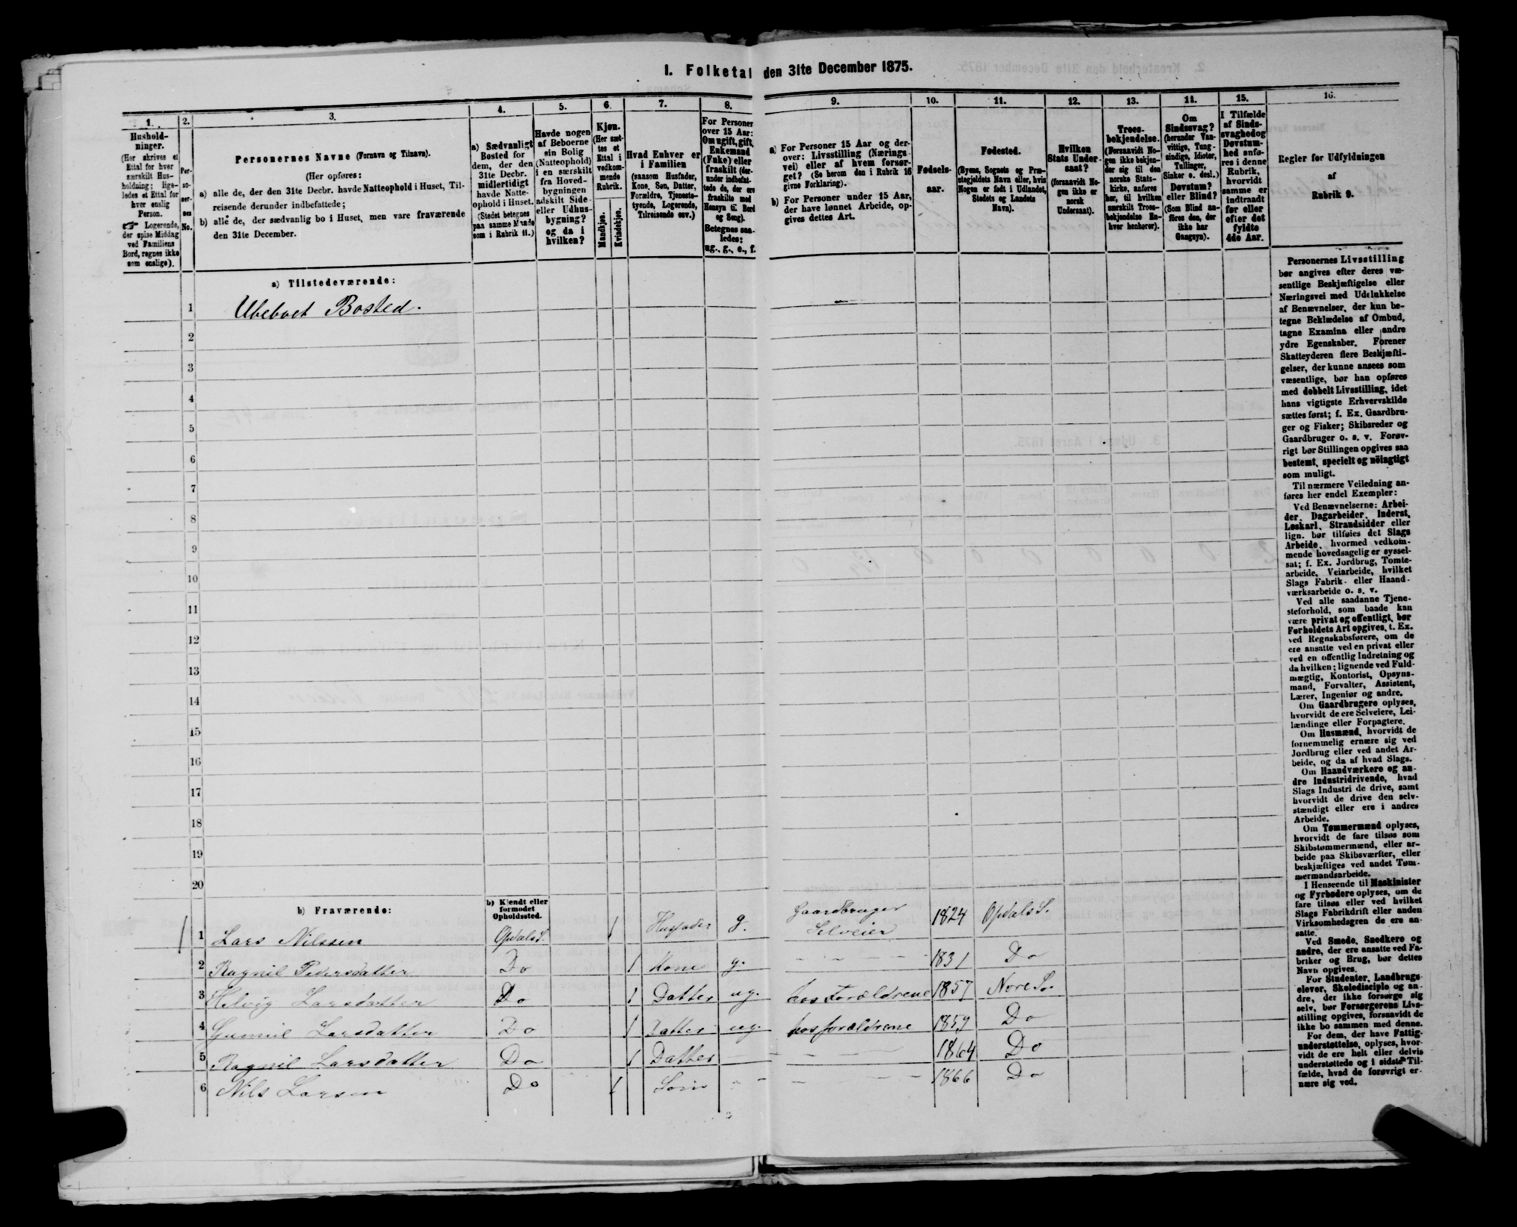 1. Folketal den 31te December 1875.
1.
Hushold-
ninger.
(Her skrives et
Ettal for hver
særskilt Hus-
holdning; lige-
ledes et Ettal for
hver enslig
Person.
☞ Logerende,
der spise Middag
ved Familiens
Bord, regnes ikke
som enslige).
2.
Per-
so-
ner-
nes
No.
3.
Personernes Navne (Fornavn og Tilnavn).
(Her opføres:
a) alle de, der den 31te Decbr. havde Natteophold i Huset, Til-
reisende derunder indbefattede;
b) alle de, der sædvanlig bo i Huset, men vare fraværende
den 31te December.
4.
a) Sædvanligt
Bosted for
dem, der den
31te Decbr.
midlertidigt
havde Natte-
ophold i Huset.
(Stedet betegnes
paa samme Maade
som i Rubrik 11.)
5.
Havde nogen
af Beboerne
sin Bolig
(Natteophold)
i en særskilt
fra Hoved-
bygningen
adskilt Side-
eller Udhus-
bygning?
og da i
hvilken?
6.
Kjøn.
(Her sæt-
tes et
Ettal i
vedkom-
mende
Rubrik.
Mandkjøn.
Kvindekjøn.
7.
Hvad Enhver er
i Familien
(saasom Husfader,
Kone, Søn, Datter,
Forældre, Tjeneste-
tyende, Logerende,
Tilreisende osv.)
8.
For Personer
over 15 Aar:
Om ugift, gift,
Enkemand
(Enke) eller
fraskilt (der-
under indbefat-
tede de, der ere
fraskilte med
Hensyn til Bord
og Seng).
Betegnes saa-
ledes:
ug., g., e., f.
9.
a) For Personer 15 Aar og der-
over: Livsstilling (Nærings-
vei) eller af hvem forsør-
get? (Se herom den i Rubrik 16
givne Forklaring).
b) For Personer under 15 Aar,
der have lønnet Arbeide, op-
gives dettes Art.
10.
Fødsels-
aar.
11.
Fødested.
(Byens, Sognets og Præ-
stegjeldets Navn eller, hvis
Nogen er født i Udlandet,
Stedets og Landets
Navn).
12.
Hvilken
Stats Under-
saat?
(forsaavidt No-
gen ikke er
norsk
Undersaat).
13.
Troes-
bekjendelse.
(Forsaavidt No-
gen ikke bekjen-
der sig til den
norske Stats-
kirke, anføres
her, til hvilken
særskilt Troes-
bekjendelse En-
hver henhører).
14.
Om
Sindssvag?
(herunder Van-
vittige, Tung-
sindige, Idioter,
Tullinger,
Sinker o. desl.)
Døvstum?
eller Blind?
(Som Blind an-
føres den, der
ikke har
Gangsyn).
15.
I Tilfælde
af Sinds-
svaghed og
Døvstum-
hed anfø-
res i denne
Rubrik,
hvorvidt
samme er
indtraadt
før eller
efter det
fyldte
4de Aar.
16.
Regler for Udfyldningen
af
Rubrik 9.
a) Tilstedeværende:
1 Ubeboet Bosted.
2
3
4
5
6
7
8
9
10
11
12
13
14
15
16
17
18
19
20
b) Fraværende:
b) Kjendt eller
formodet
Opholdssted.
1 1 Lars Nilssen Opdals S. 1 Husfader g. Gaardbruger Selveier 1824 Opdals S.
2 Ragnil Pedersdatter Do 1 Kone g. – – – 1831 Do
3 Helvig Larsdatter Do 1 Datter ug. hos Forældrene 1857 Nore S.
4 Gunnil Larsdatter Do 1 Datter ug. hos forældrene 1859 Do
5 Ragnil Larsdatter Do 1 Datter – – – – 1864 Do
6 Nils Larsen Do 1 Søn – – – – – 1866 Do
Personernes Livsstilling
bør angives efter deres væ-
sentlige Beskjæftigelse eller
Næringsvei med Udelukkelse
af Benævnelser, der kun be-
tegne Beklædelse af Ombud,
tagne Examina eller andre
ydre Egenskaber. Forener
Skatteyderen flere Beskjæfti-
gelser, der kunne ansees som
væsentlige, bør han opføres
med dobbelt Livsstilling, idet
hans vigtigste Erhvervskilde
sættes først; f. Ex. Gaardbru-
ger og Fisker; Skibsreder og
Gaardbruger o. s. v. Forøv-
rigt bør Stillingen opgives saa
bestemt, specielt og nøiagtigt
som muligt.
Til nærmere Veiledning an-
føres her endel Exempler:
Ved Benævnelserne: Arbei-
der, Dagarbeider, Inderst,
Løskarl, Strandsidder eller
lign. bør tilføies det Slags
Arbeide, hvormed vedkom-
mende hovedsagelig er syssel-
sat; f. Ex. Jordbrug, Tomte-
arbeide, Veiarbeide, hvilket
Slags Fabrik- eller Haand-
værksarbeide o. s. v.
Ved alle saadanne Tjene-
steforhold, som baade kan
være privat og offentligt, bør
Forholdets Art opgives, t. Ex.
ved Regnskabsførere, om de
ere ansatte ved en privat eller
ved en offentlig Indretning og
da hvilken; lignende ved Fuld-
mægtig, Kontorist, Opsyns-
mand, Forvalter, Assistent,
Lærer, Ingeniør og andre.
Om Gaardbrugere oplyses,
hvorvidt de ere Selveiere, Lei-
lændinge eller Forpagtere.
Om Husmænd, hvorvidt de
fornemmelig ernære sig ved
Jordbrug eller ved andet Ar-
beide, og da af hvad Slags.
Om Haandværkere og an-
dre Industridrivende, hvad
Slags Industri de drive, samt
hvorvidt de drive den selv-
stændigt eller ere i andres
Arbeide.
Om Tømmermænd oplyses,
hvorvidt de fare tilsøs som
Skibstømmermænd, eller ar-
beide paa Skibsværfter, eller
beskjæftiges ved andet Tøm-
mermandsarbeide.
I Henseende til Maskinister
og Fyrbødere oplyses, om de
fare tilsøs eller ved hvilket
Slags Fabrikdrift eller anden
Virksomhedsgren de ere an-
satte.
Ved Smede, Snedkere og
andre, der ere ansatte ved Fa-
briker og Brug, bør dettes
Navn opgives.
For Studenter, Landbrugs-
elever, Skoledisciple og an-
dre, der ikke forsørge sig
selv, bør Forsørgerens Livs-
stilling opgives, forsaavidt de
ikke bo sammen med denne.
For dem, der have Fattig-
understøttelse, oplyses, hvor-
vidt de ere helt eller delvis
understøttede og i sidste Til-
fælde, hvad de forøvrigt er-
nære sig ved.